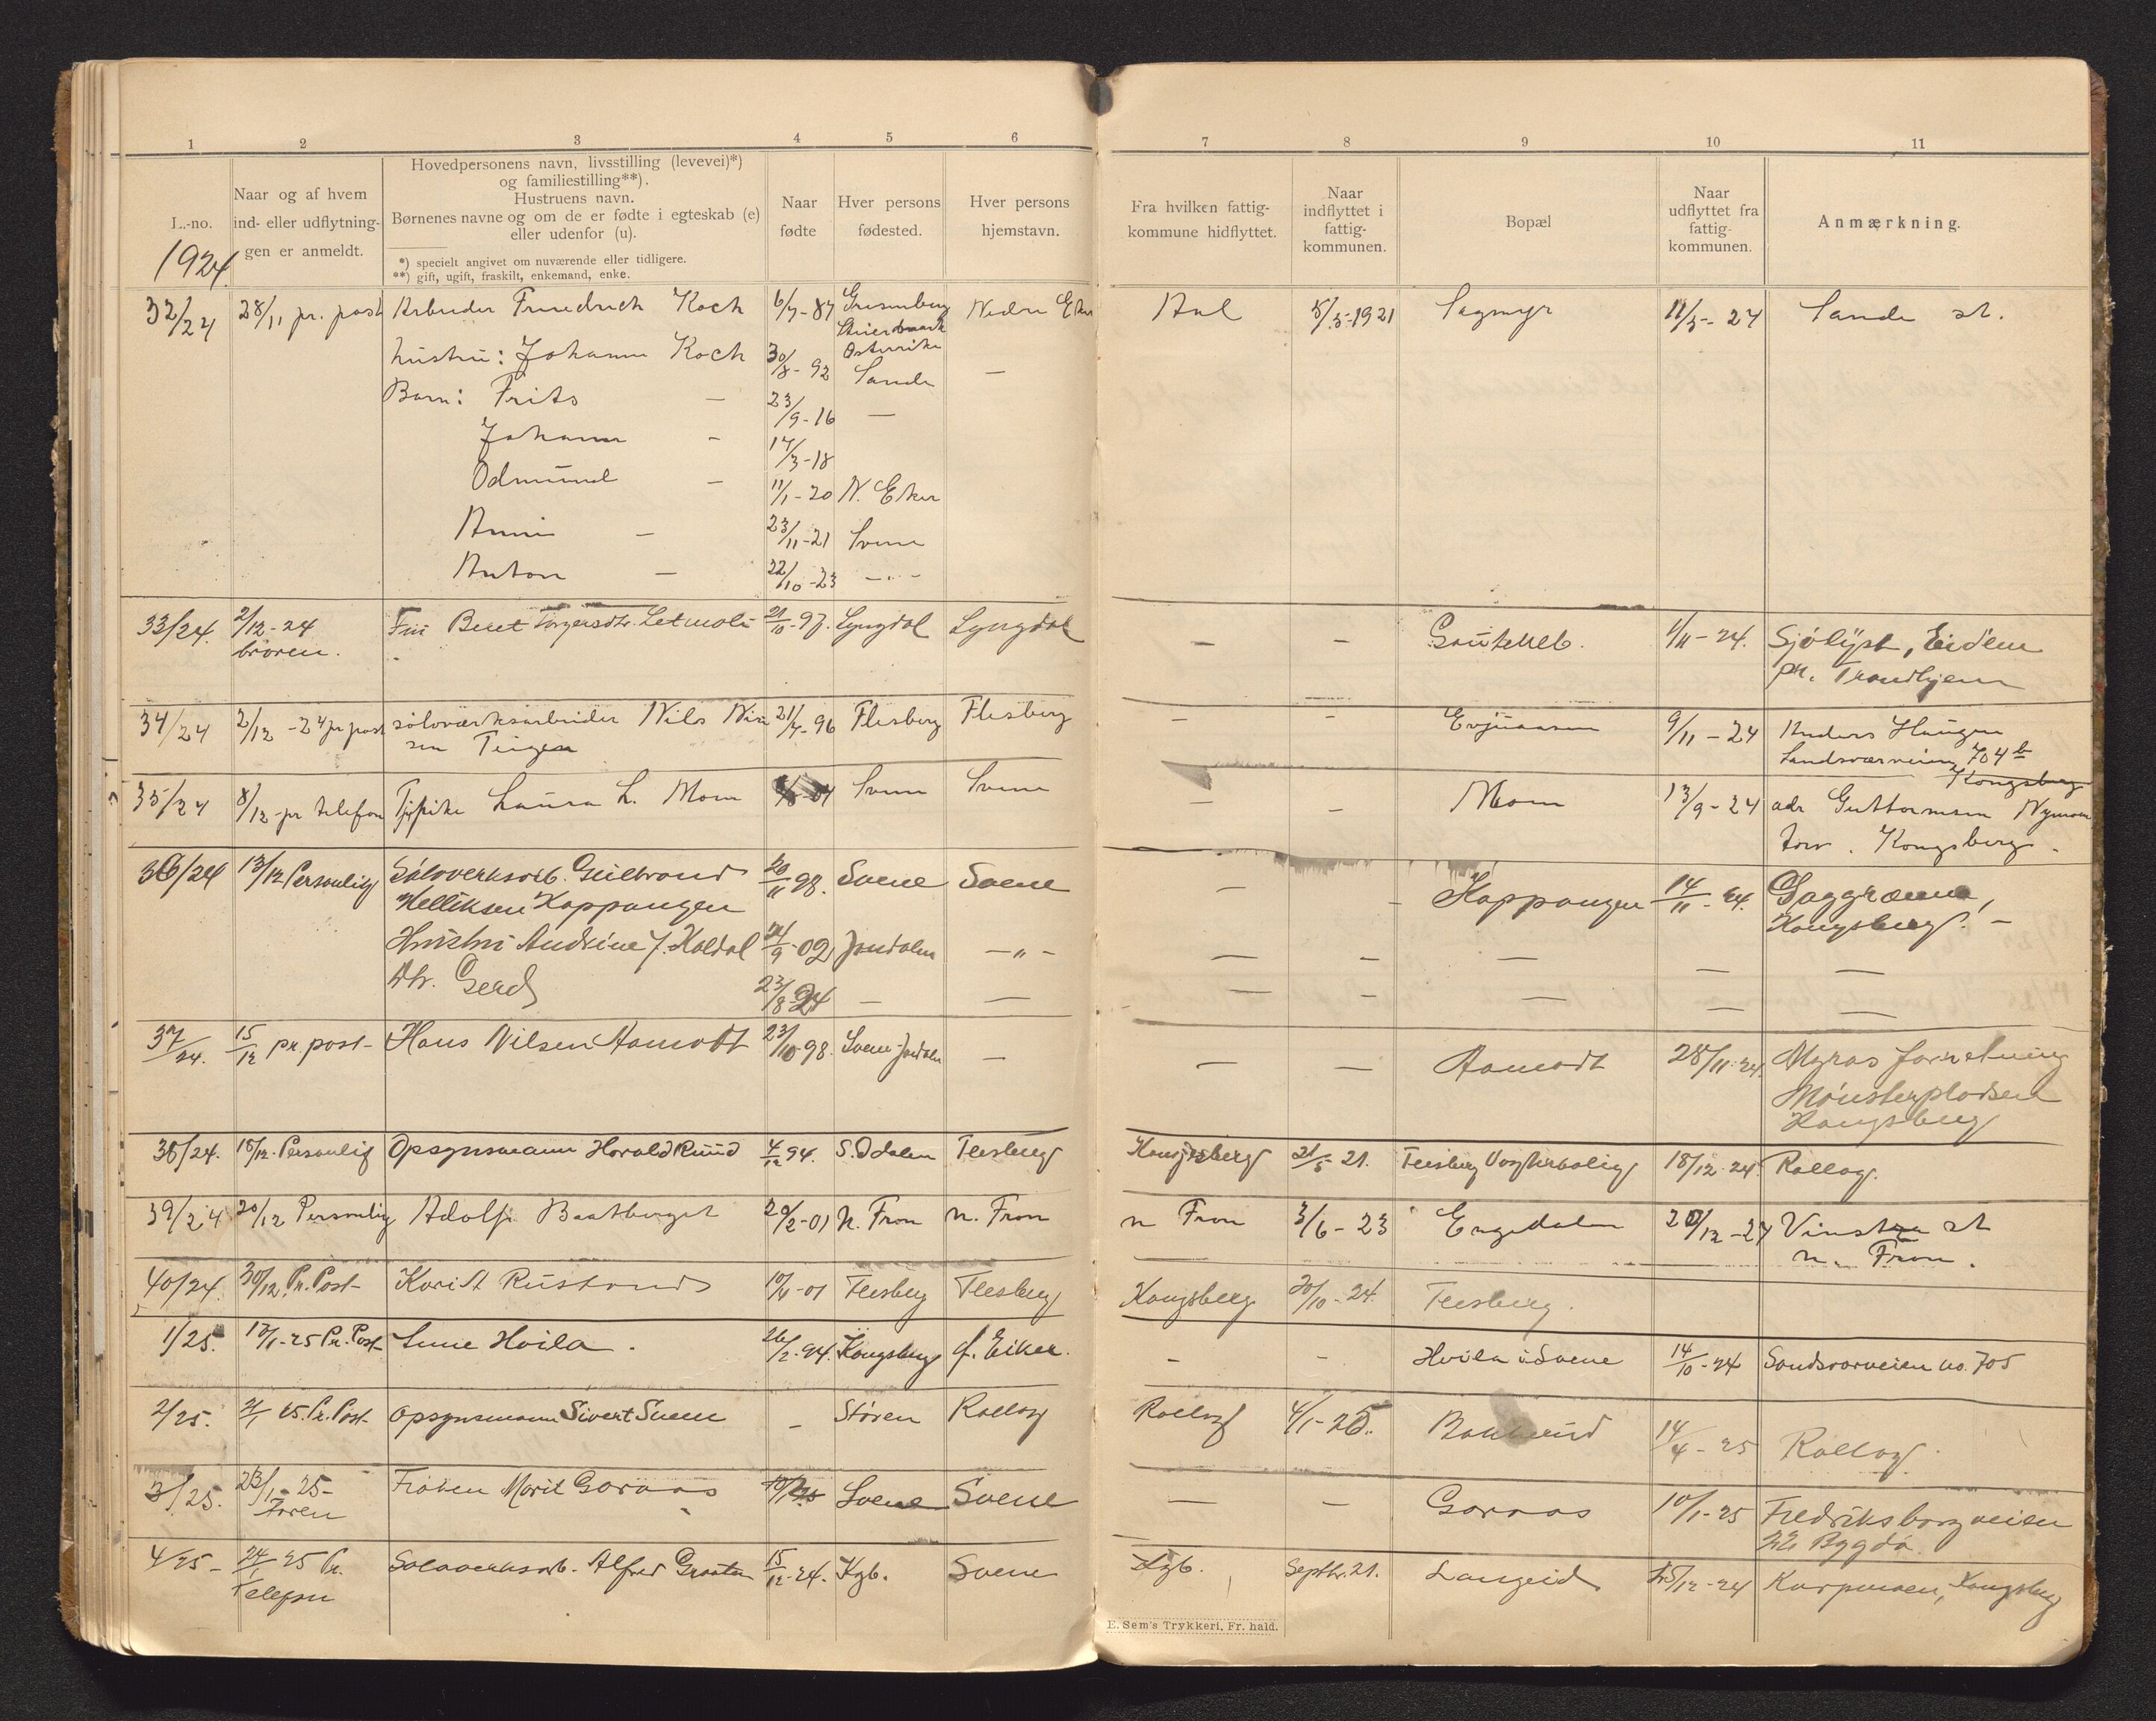 1 2 3 4 5 6 7 8 9 10 11
L.-no.
1924.
Naar og af hvem
ind- eller udflytnin­gen er anmeldt.
Hovedpersonens navn, livsstilling (levevei)*)
og familiestilling**).
Hustruens navn.
Børnenes navne og om de er fødte i egteskab (e)
eller udenfor (u).
*) specielt angivet om nuværende eller tidligere.
**) gift, ugift, fraskilt, enkemand, enke.
Naar
fødte
Hver persons
fødested.
Hver persons
hjemstavn.
Fra hvilken fattig-
kommune hidflyttet.
Naar
indflyttet i
fattig-
kommunen.
Bopæl
Naar
udflyttet fra
fattig-
kommunen.
Anmærkning.
32/24 28/11 pr. post Arbeider Friedrich Koch 6/7-87 Nedre Eker 5/5-1921 Sagmyr 11/5-24 Sande st.
Steiermark
Østerrike
hustru: Johanne Koch 30/8-92 Sande —
Barn: Frits — 23/9-16 —
Johann - 17/3-18
Odmund - 11/1-20 N. Eker
Anni - 23/11-21 Svene
Anton - 22/10-23 -"-
33/24. 2/12-24 Frk Beret Torgersdtr. 21/10-97. Lyngdal Lyngdal — — 1/11-24. Sjölyst, Eidem
broren. pr. Trondhjem
34/24 2/12-24 pr post sölvverksarbeider Nils Nil 21/4-96 Flesberg Flesberg - - Evjuaasen 9/11-24 Anders Haugen
sen Teigen Sandsværveien 704 b
Kongsberg
35/24 8/12 pr telefon Laura L. Moen Svene Svene — — Moen 13/9-24 adr Guttormsen Nymoen
torv. Kongsberg.
36/24 13/12 Personlig Sölvverksarb. Gulbrand 20/11 98. Svene Svene — - Kappangen 14/11-24. Saggrenna,
Helliksen Kappangen Kongsberg. -
Hustru Andrine J. Koldal 24/9-02 Jondalen -"- — — — — —
Dtr. Gerd 23/8-24 — — — — — — —
37/24. 15/12 pr. post- Hans Nilsen Aamodt 23/10-98. Svene-Jondalen — — — Aamodt 28/11-24. Myras forretning
Mönsterpladsen
Kongsberg
38/24. 18/12. Personlig Opsynsmann Harald Ruud 4/12 94. S. Odalen Flesberg Kongsberg 21/5-21. Flesberg Vogterbolig 18/12-24. Rollag.
39/24 20/12 Personlig Adolf Baatberget 20/2-01 N. Fron n. Fron n Fron 3/6-23 Engedalen 20/12-24 Vinstra st
n. Fron.
40/24. 30/12 Pr. Post- Rustand 10/6-01 Flesberg Flesberg Kongsberg 20/10-24. Flesberg.
1/25. 13/1-25 Pr. Post- Hvila. 26/2-94. Kongsberg Ö. Eiker. - - Hvila i Svene 14/10-24 Sandsværveien no. 705
2/25. 21/1 25. Pr. Post- Opsynsmann Sivert Suen - Stören Rollag Rollag 4/1-25. Bakkerud 14/4-25 Rollag.
3/25. 23/1-25- Fröken Marit Goraas Svene Svene — — Goraas 10/1-25 Fredriksborgveien
Faren 22 Bygdö
4/25- 24/1 25 Pr. Sölvverksarb. Alfred 15/12-24. Kgb. Svene Kgb. Septbr. 21. Langeid 15/12-24 Karpmoen, Kongsberg
Telefon
E. Sem's Trykkeri, Fr. hald.